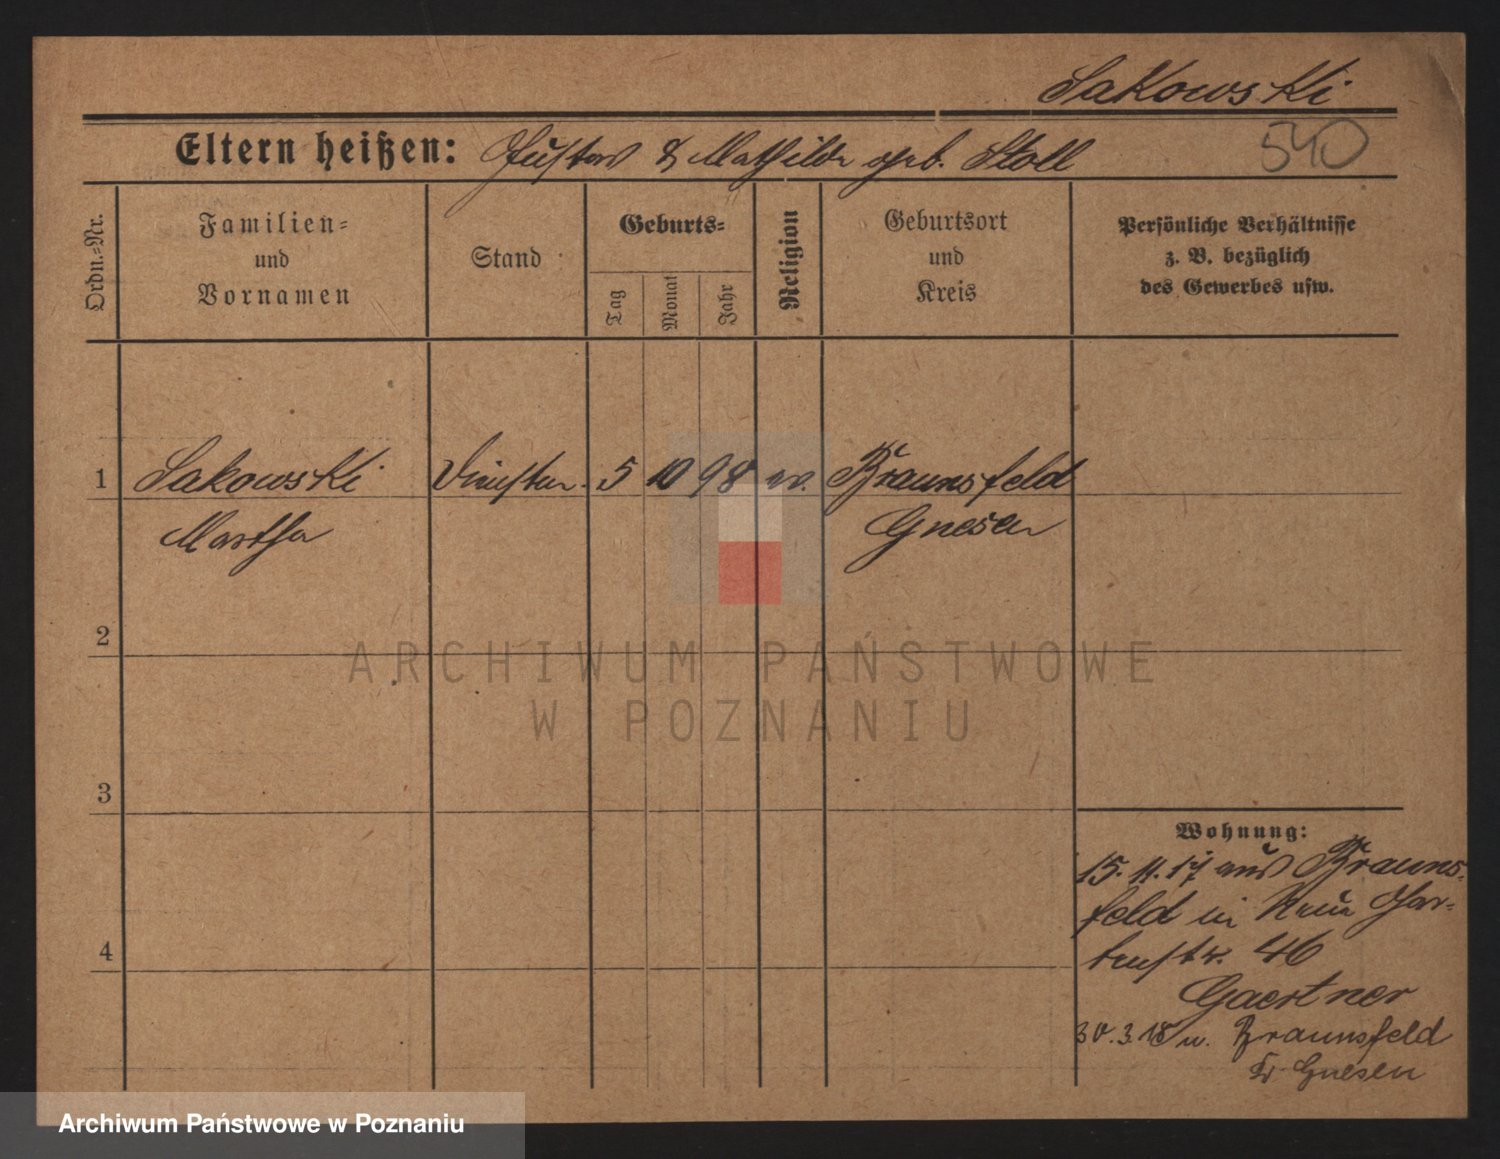 Sakowski
Eltern heißen: Gustav & Mathilde geb. Stoll
540
Ordn.-Nr.
Familien-
und
Vornamen
Stand
Geburts-
Tag
Monat
Jahr
Religion
Geburtsort
und
Kreis
Persönliche Verhältnisse
z. B. bezüglich
des Gewerbes usw.
1 Sakowski 5 10 98 ev. Braunsfeld
Martha Gnesen
2
3
4
Wohnung:
15. 11. 17 aus Brauns-
feld in Neue Gar-
tenstr. 46
Gaertner
30.3.18 n. Braunsfeld
Kr. Gnesen
ARCHIWUM PAŃSTWOWE
W POZNANIU
Archiwum Państwowe w Poznaniu